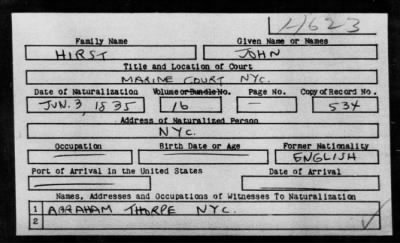 4623
Family Name Given Name or Names
HIRST JOHN
Title and Location of Court
MARINE COURT NYC.
Date of Naturalization Volume or Bundle No. Page No. Copy of Record No.
JUN. 3, 1835 16 — 534
Address of Naturalized Person
NYC.
Occupation Birth Date or Age Former Nationality
— — ENGLISH
Port of Arrival in the United States Date of Arrival
— —
Names, Addresses and Occupations of Witnesses To Naturalization
1 ABRAHAM THORPE NYC.
2